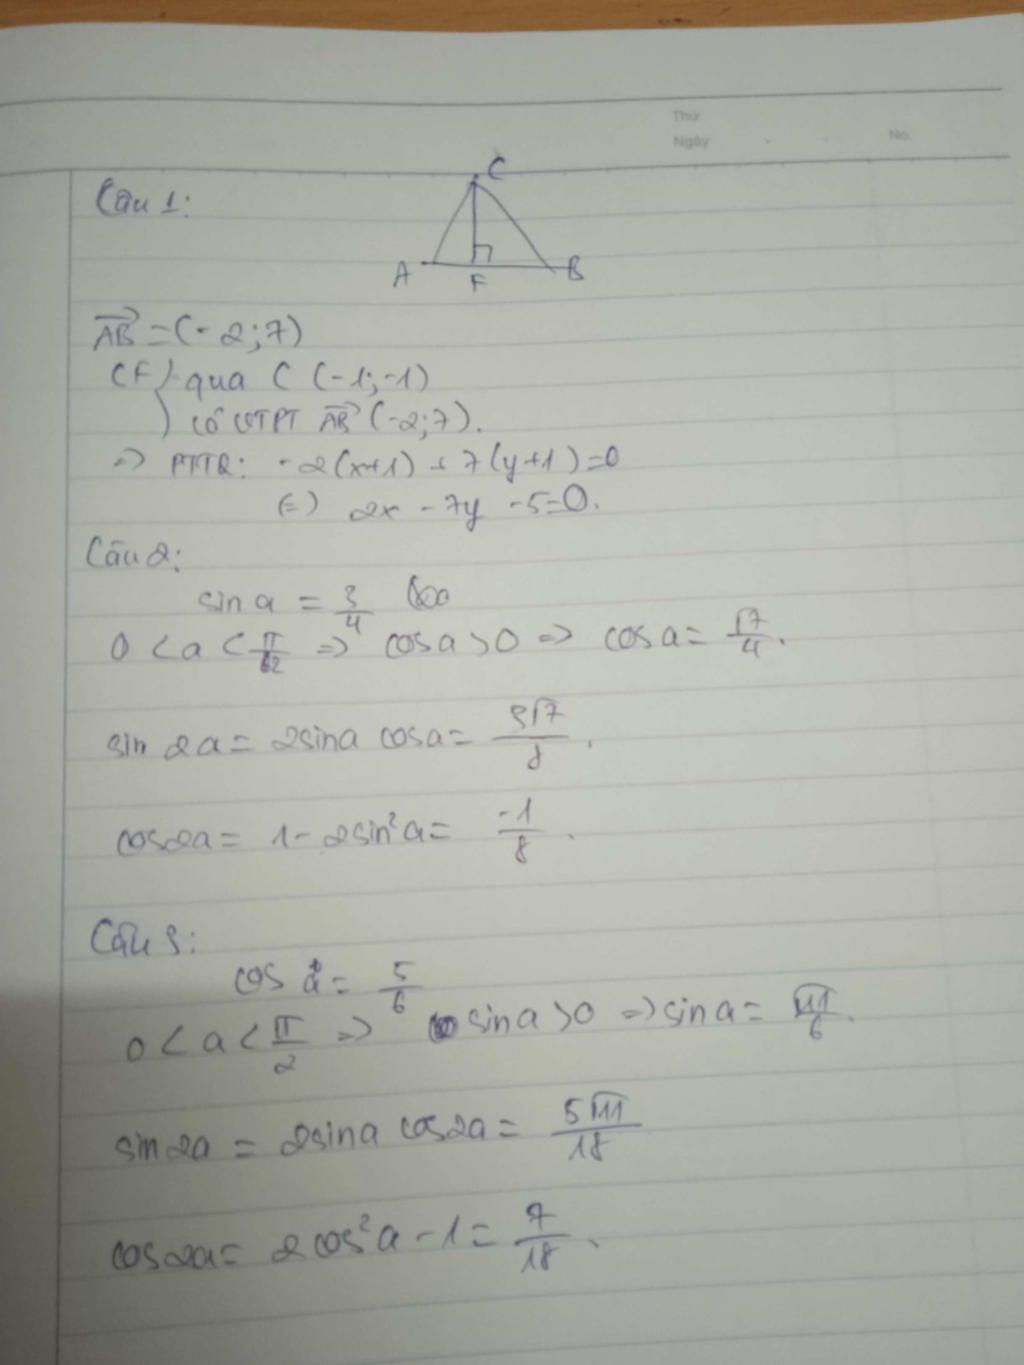 Thứ
Ngày No.
Câu 1:
C
A F B
AB = (-2;7)
CF qua C (-1;-1)
có VTPT AB (-2;7).
=> PTTQ: -2(x+1) + 7(y+1)=0
(=) 2x - 7y -5=0.
Câu 2:
sin a = 3/4
0 < a < π/2 => cos a > 0 => cos a = √7/4.
sin 2a = 2sina cosa = 3√7/8.
cos2a = 1 - 2sin²a = -1/8.
Câu 3:
cos a = 5/6
0 < a < π/2 => sin a > 0 => sin a = √11/6.
sin2a = 2sina cos2a = 5√11/18
cos2a = 2cos²a - 1 = 7/18.